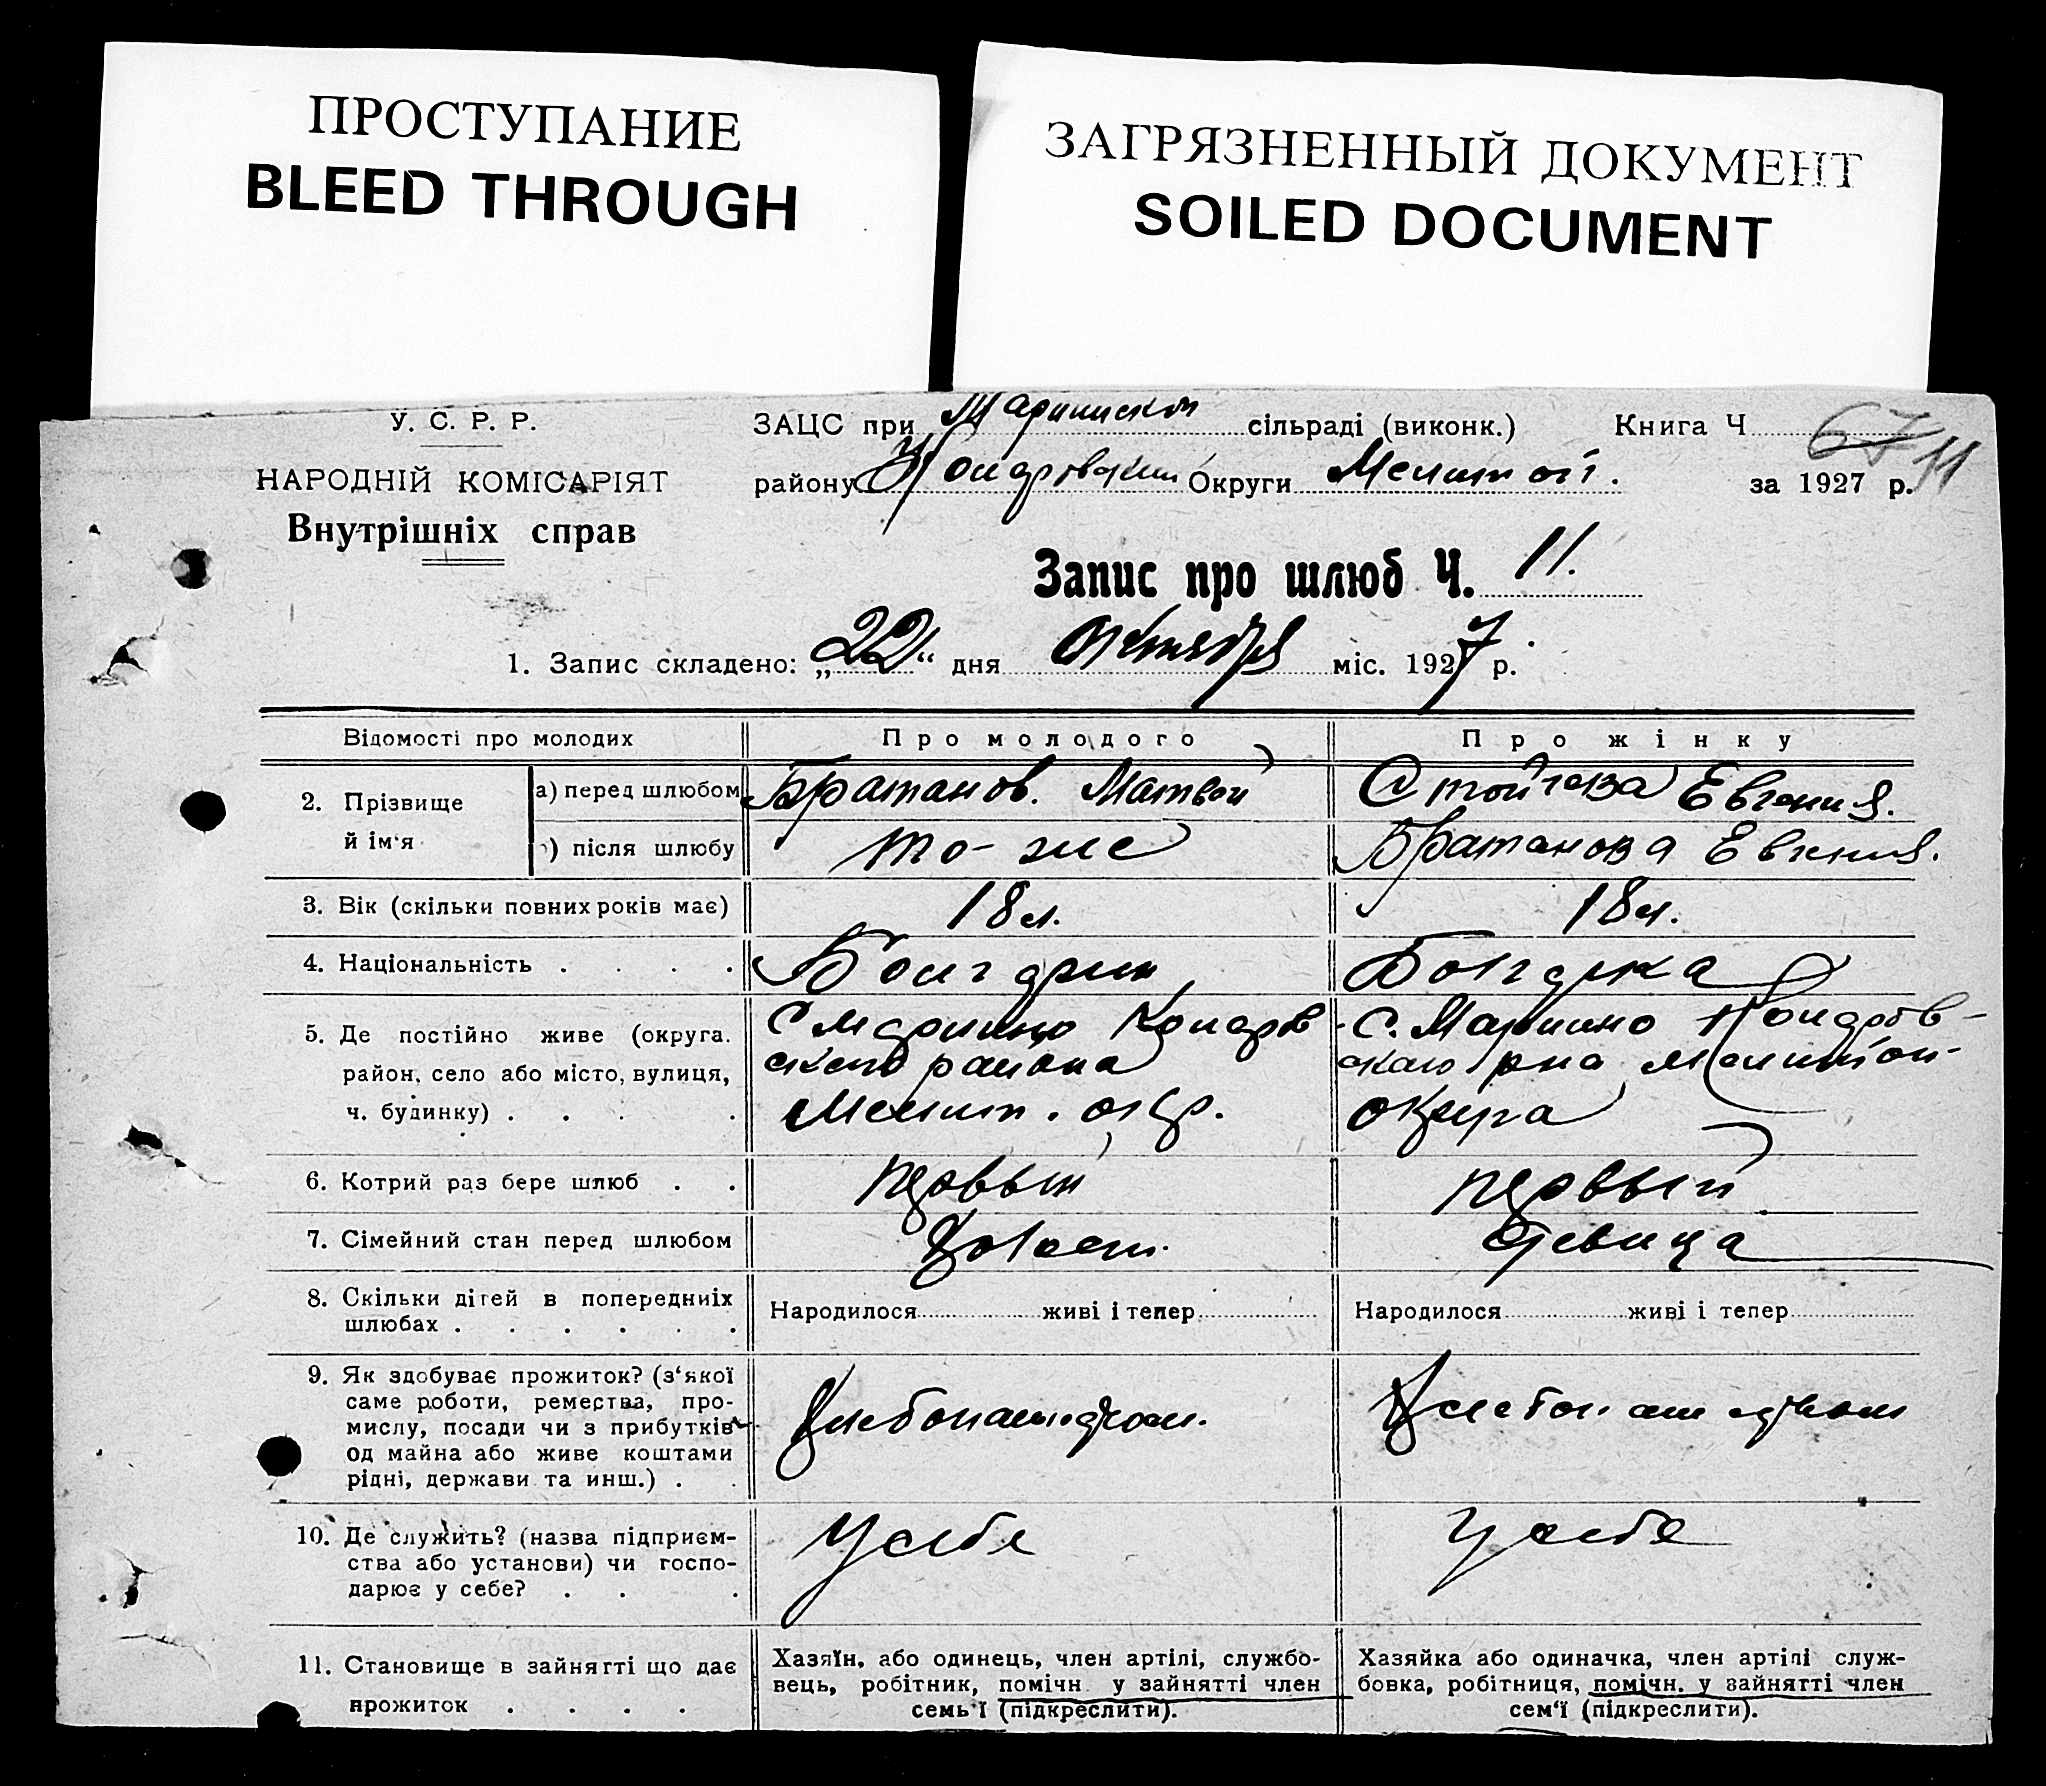 ПРОСТУПАНИЕ
BLEED THROUGH
ЗАГРЯЗНЕННЫЙ ДОКУМЕНТ
SOILED DOCUMENT
У. С. Р. Р.
НАРОДНІЙ КОМІСАРІЯТ
Внутрішніх справ
ЗАЦС при Мариинском сільраді (виконк.) Книга Ч
району Округи Мелитоп. за 1927 р.
11
Запис про шлюб Ч. 11.
1. Запис складено: „22“ дня Октября міс. 1927 р.
Відомості про молодих
Про молодого
Про жінку
2. Прізвище й ім'я
а) перед шлюбом
Братанов Матвей
Стойчева Евгения.
) після шлюбу
то-же
Братанова Евгения.
3. Вік (скільки повних років має)
18 л.
18 л.
4. Національність . . . .
Болгарин
Болгарка
5. Де постійно живе (округа.
район, село або місто, вулиця,
ч. будинку) . . . .
С Марьино
ского района
Мелит. окр.
С. Марьино
скаго рна Мелитоп-
округа
6. Котрий раз бере шлюб . .
первый
первый
7. Сімейний стан перед шлюбом
Холост.
девица
8. Скільки дітей в попередниіх
шлюбах . . . . . .
Народилося живі і тепер
Народилося живі і тепер
9. Як здобуває прожиток? (з'якої
саме роботи, ремества, про-
мислу, посади чи з прибутків
од майна або живе коштами
рідні, держави та инш.) . .
Хлебопашеством.
Хлебопашеством
10. Де служить? (назва підприєм-
ства або установи) чи госпо-
дарює у себе? . . .
У себя
У себя
11. Становище в зайнятті що дає
прожиток . . . .
Хазяїн, або одинець, член артілі, службо-
вець, робітник, помічн. у зайнятті член
семь'ї (підкреслити).
Хазяйка або одиначка, член артілі служ-
бовка, робітниця, помічн. у зайнятті член
сем'ї (підкреслити).